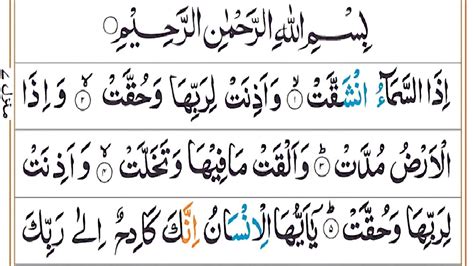 بِسْمِ اللهِ الرَّحْمٰنِ الرَّحِيْمِ
اِذَا السَّمَآءُ انْشَقَّتْ ۙ﴿۱﴾ وَاَذِنَتْ لِرَبِّهَا وَحُقَّتْ ۙ﴿۲﴾ وَ اِذَا
الْاَرْضُ مُدَّتْ ۙ﴿۳﴾ وَاَلْقَتْ مَا فِيْهَا وَتَخَلَّتْ ۙ﴿۴﴾ وَ اَذِنَتْ
لِرَبِّهَا وَحُقَّتْ ؕ﴿۵﴾ يٰۤاَيُّهَا الْاِنْسَانُ اِنَّكَ كَادِحٌ اِلٰى رَبِّكَ
منزل ۷